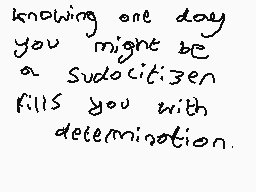 knowing one day
you might be
a sudocitizen
fills you with
determination.